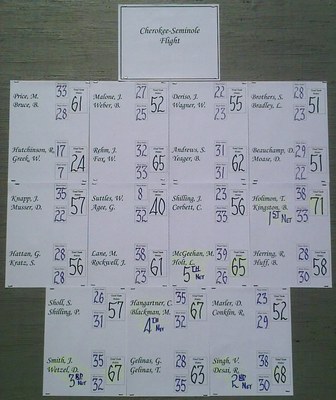 Cherokee-Seminole
Flight
Price, M. 33
Bruce, B. 28 61
Malone, J. 27
Weber, B. 25 52
Deriso, J. 22
Wagner, W. 23 55
Brothers, S. 28
Bradley, L. 23 51
Hutchinson, R. 17
Greek, W. 7 24
Rehm, J. 32
Fox, W. 33 65
Andrews, S. 31
Yeager, B. 31 62
Beauchamp, D. 29
Moase, D. 22 51
Knapp, J. 35
Musser, D. 22 57
Suttles, W. 8
Agee, G. 32 40
Shilling, J. 23
Corbett, C. 33 56
Holimon, T. 38
Kingston, B. 33 71
1st Net
Hattan, G. 28
Kratz, S. 28 56
Lane, M. 38
Rockwell, J. 23 61
McGeehan, M. 39
Holt, L. 26 65
5th Net
Herring, R. 28
Huff, B. 30 58
Sholl, S. 26
Shilling, P. 31 57
Hangartner, C. 35
Blackman, M. 32 67
4th Net
Marler, D. 23
Conklin, R. 29 52
Smith, J. 35
Wetzel, D. 32 67
3rd Net
Gelinas, G. 28
Gelinas, T. 35 63
Singh, V. 38
Desai, R. 30 68
2nd Net